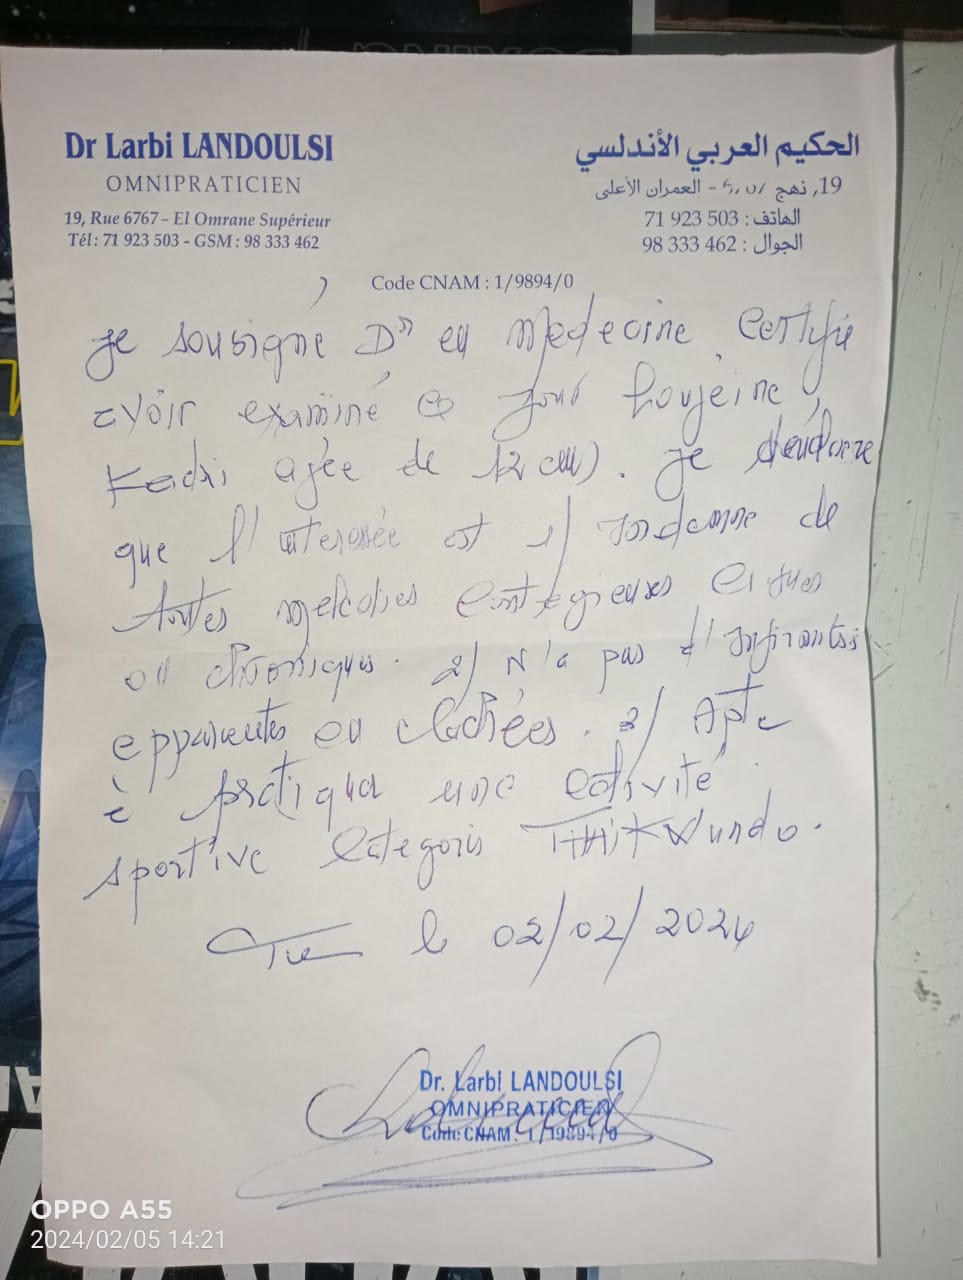 Dr Larbi LANDOULSI
OMNIPRATICIEN
19, Rue 6767 – El Omrane Supérieur
Tél: 71 923 503 - GSM : 98 333 462
الحكيم العربي الأندلسي
19, نهج - العمران الأعلى
الهاتف : 503 923 71
الجوال : 462 333 98
Code CNAM : 1/9894/0
Je sousigné Dr en Médecine, Certifie
avoir examiné ce jour houjeine
Kadri agée de 12 ans. Je
que l'interessée est 1/ de
toutes maladies contagieuses
ou chroniques. 2/ N'a pas d'
apparentes ou cachées. 3/ Apte
à pratiquer une activité
sportive categorie
le 02/02/2024
Dr. Larbi LANDOULSI
OMNIPRATICIEN
Code CNAM : 1/9894/0
OPPO A55
2024/02/05 14:21